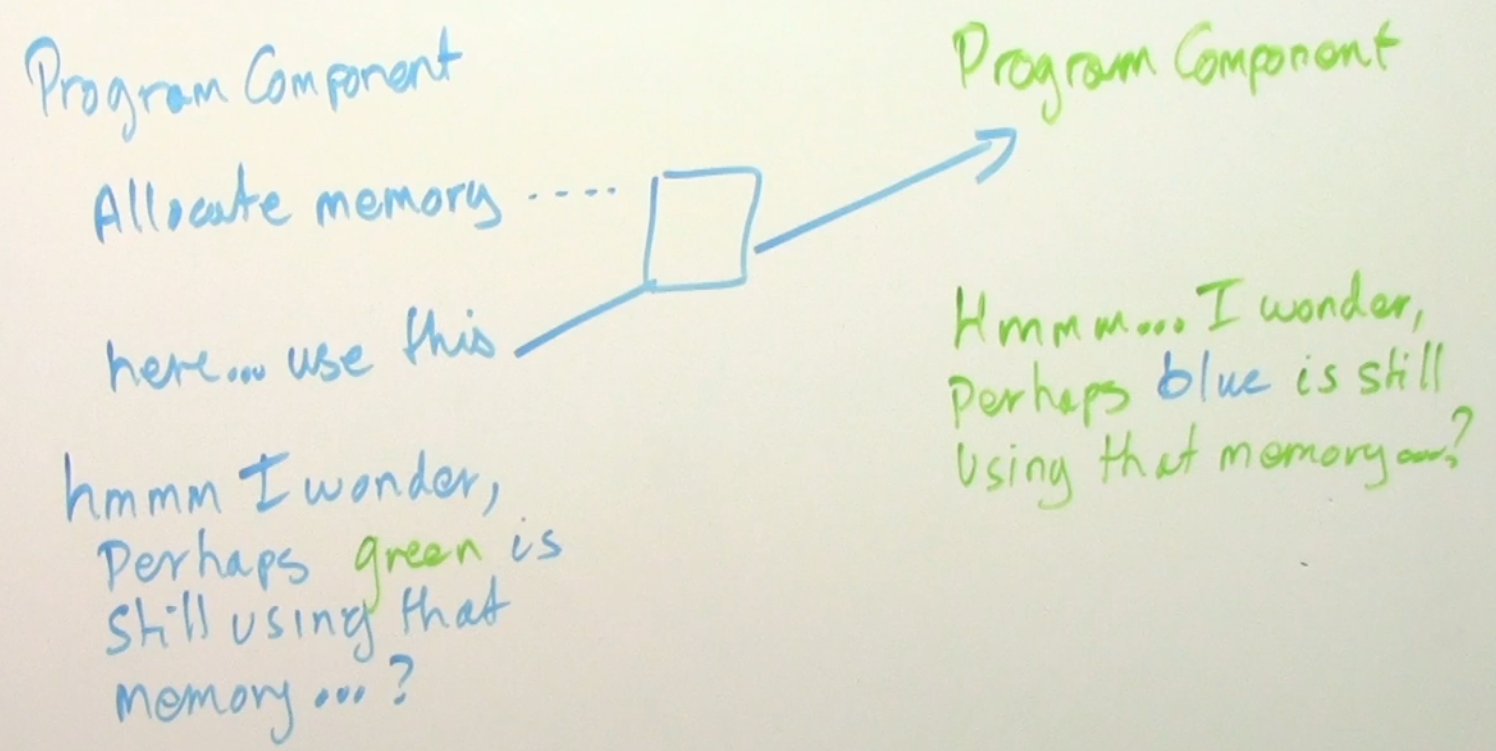 Program Component
Allocate memory ....
here... use this
hmmm I wonder,
Perhaps green is
still using that
memory ... ?
Program Component
Hmmm... I wonder,
Perhaps blue is still
Using that memory...?